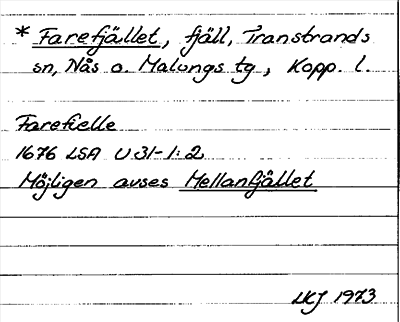 * Farefjället, fjäll, Transtrands
sn, Nås o. Malungs tg, Kopp. l.
Farefielle
1676 LSA U31-1:2
Möjligen avses Mellanfjället
LKJ 1973